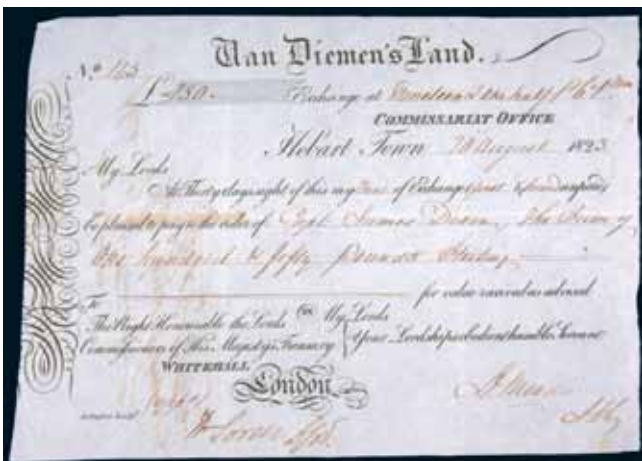 Van Diemen's Land.
No. 163
£ 150. Exchange at Nineteen & one half P Ct
COMMISSARIAT OFFICE
Hobart Town 20 August 1823
My Lords
At Thirty days sight of this my of Exchange unpaid
be pleased to pay to the order of Capt. James Dixon, the Sum of
One hundred & fifty Pounds Sterling
for value received as advised
To
The Right Honourable the Lords
Commissioners of His Majesty's Treasury
WHITEHALL
London
My Lords
Your Lordships obedient humble Servant